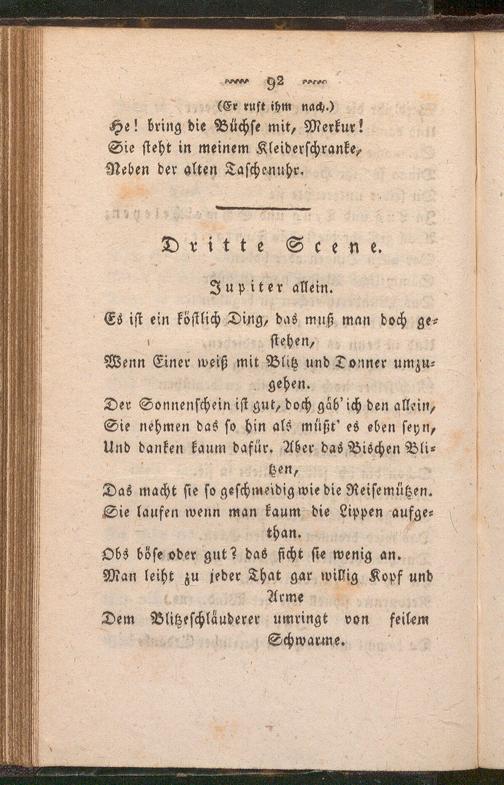 92
(Er ruft ihm nach.)
He! bring die Büchse mit, Merkur!
Sie steht in meinem Kleiderschranke,
Neben der alten Taschenuhr.
Dritte Scene.
Jupiter allein.
Es ist ein köstlich Ding, das muß man doch ge=
stehen,
Wenn Einer weiß mit Blitz und Donner umzu=
gehen.
Der Sonnenschein ist gut, doch gäb' ich den allein,
Sie nehmen das so hin als müßt' es eben seyn,
Und danken kaum dafür. Aber das Bischen Bli=
tzen,
Das macht sie so geschmeidig wie die Reisemützen.
Sie laufen wenn man kaum die Lippen aufge=
than.
Obs böse oder gut? das ficht sie wenig an.
Man leiht zu jeder That gar willig Kopf und
Arme
Dem Blitzeschläuderer umringt von feilem
Schwarme.